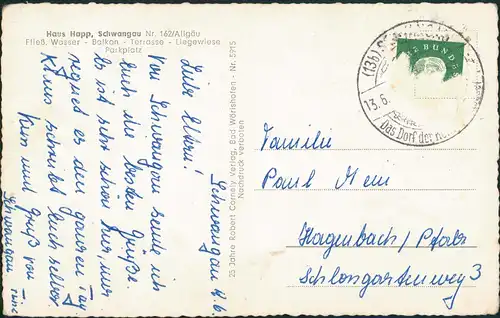 Haus Happ, Schwangau Nr. 162/Allgäu
Fließ. Wasser - Balkon - Terrasse - Liegewiese
Parkplatz
Liebe Eltern! Schwangau
Von Schwangau sende ich
Euch die besten Grüße.
Es ist sehr schön hier, nur
regnet es den ganzen Tag
Klaus schreibt Euch selber
Kuss und Gruß von
Schwangau
25 Jahre Robert Cornely Verlag, Bad Wörishofen - Nr. 5915
Nachdruck verboten
(13b)
13.6.
Das Dorf der
BUNDES
Familie
Paul Hein
Hagenbach/Pfalz
Schlongartenweg 3